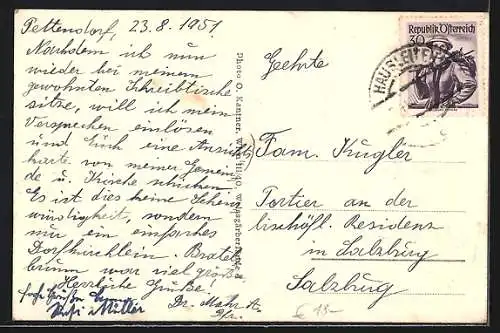 Pettendorf, 23.8.1951.
Nachdem ich nun
wieder bei meinem
gewohnten Schreibtische
sitze, will ich mein
Versprechen einlösen
und Euch eine Ansichts
karte von meiner Gemein
de u. Kirche schicken.
Es ist dies keine Sehens
würdigkeit, sondern
nur ein einfaches
Dorfkirchlein.
brunn war viel größer.
Herzliche Grüße!
Dr.
Mutter
Photo O. Kantner, Wien
Republik Österreich
30
HAUSLEITEN
Geehrte
Fam. Kugler
Portier an der
bischöfl. Residenz
in Salzburg
Salzburg
€ 15-